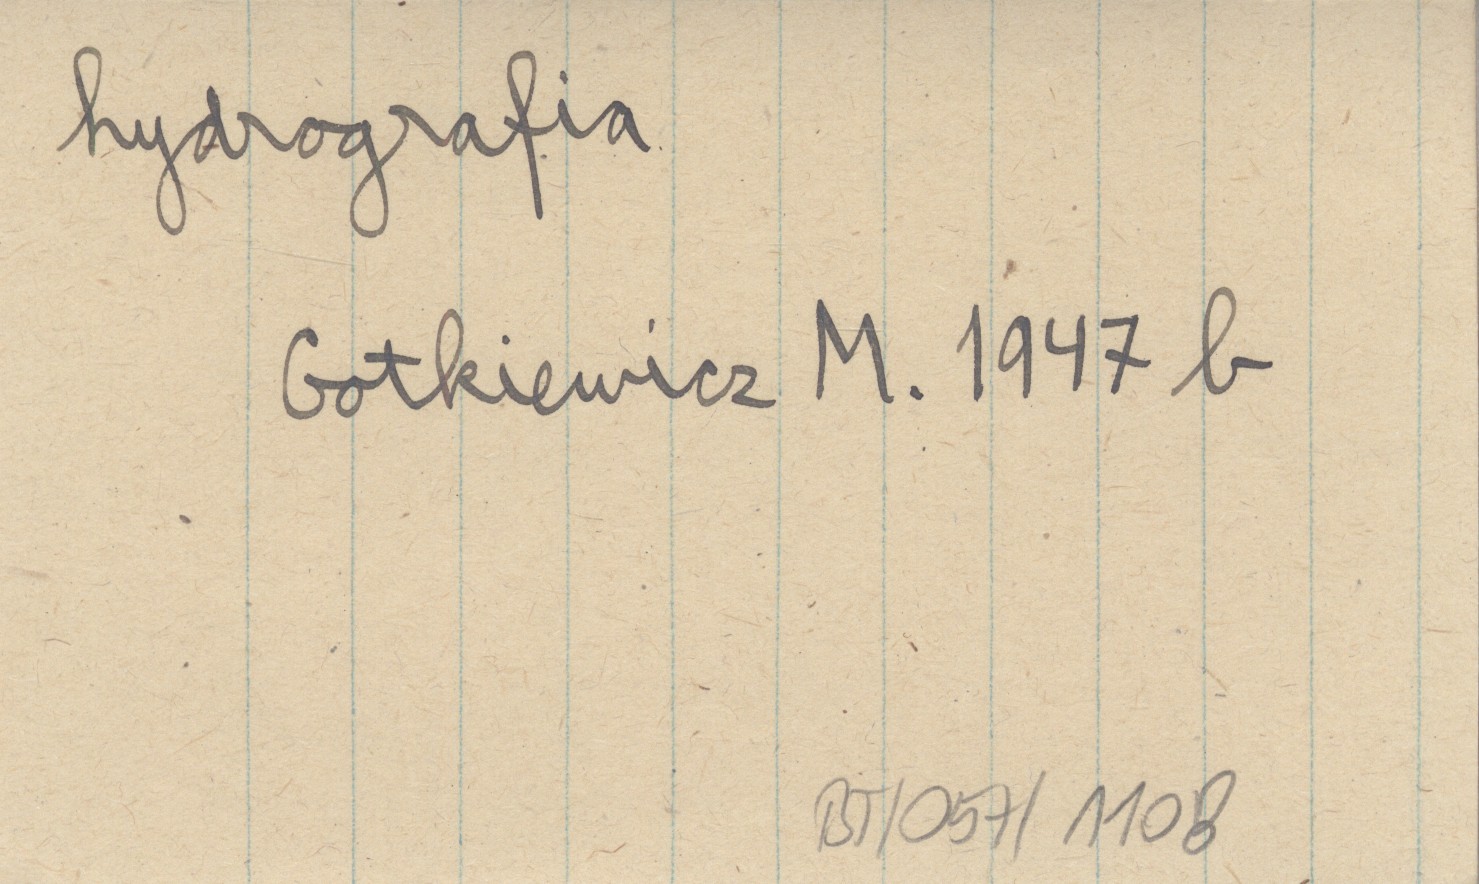 hydrografia
Gotkiewicz M. 1947 b
BT/057/1108